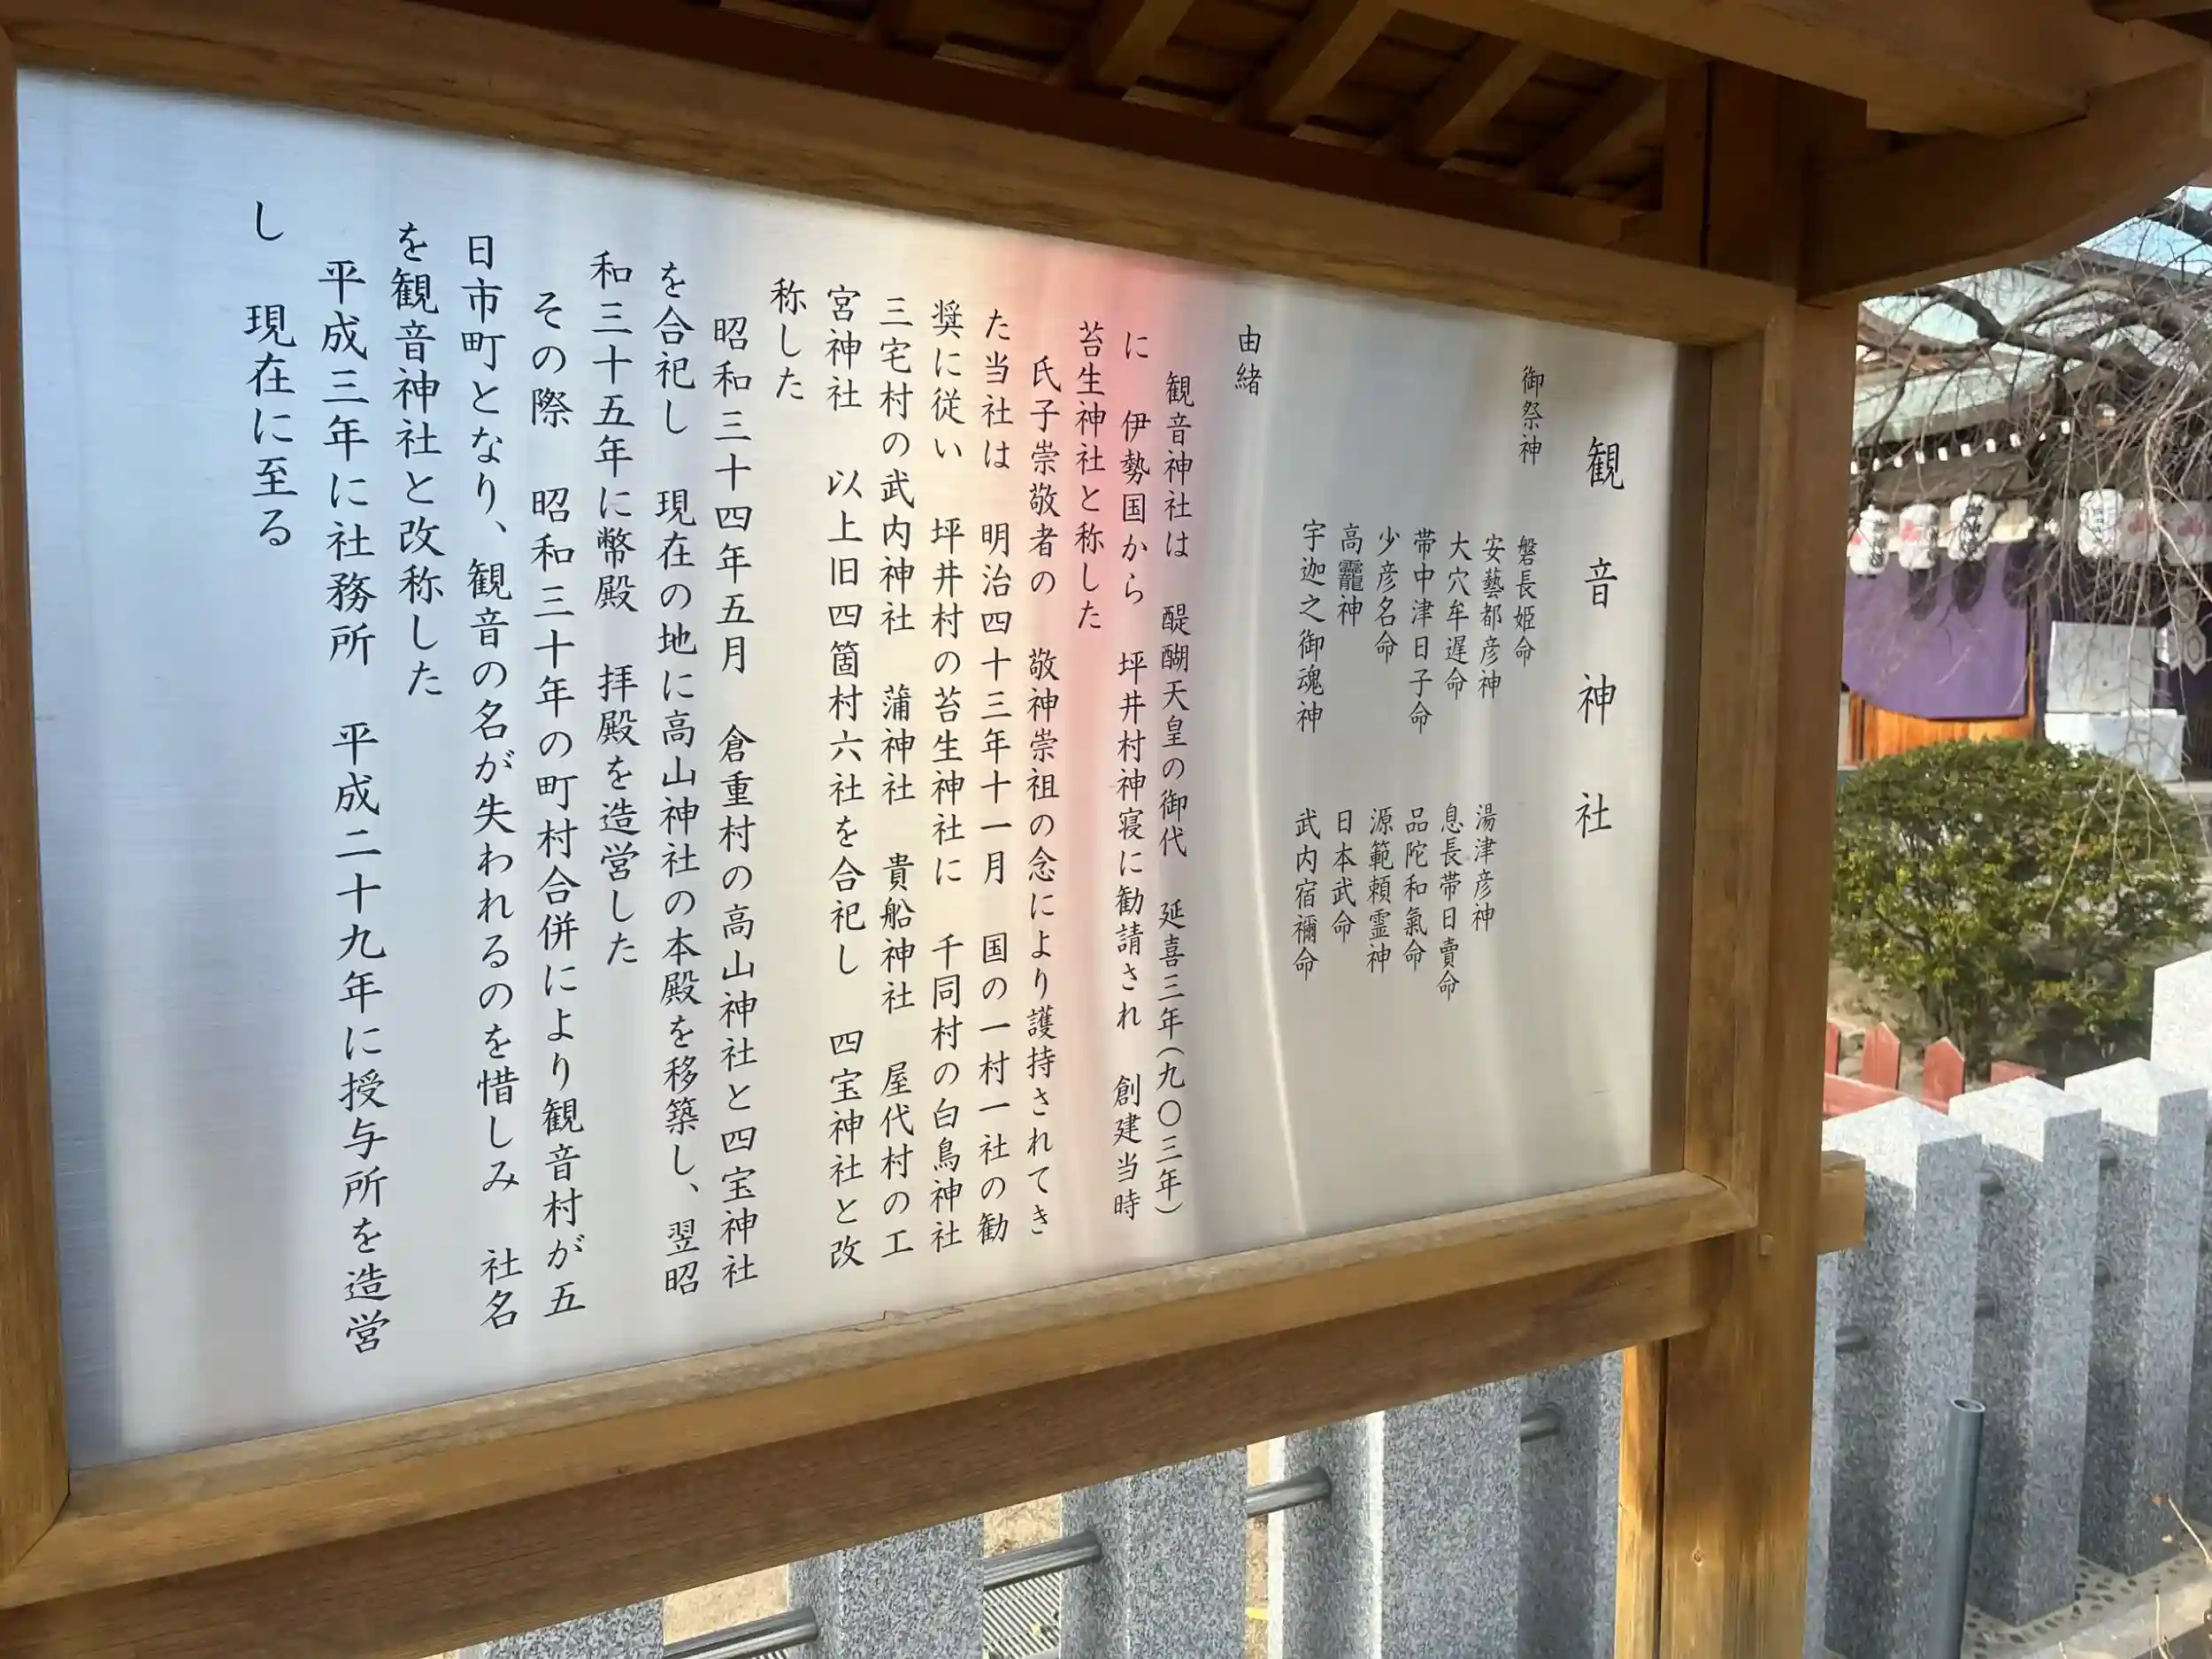 観音神社
御祭神
磐長姫命
安藝都彦神　湯津彦神
大穴牟遅命　息長帯日賣命
帯中津日子命　品陀和氣命
少彦名命　源範頼霊神
高龗神　日本武命
宇迦之御魂神　武内宿禰命
由緒
観音神社は　醍醐天皇の御代　延喜三年(九〇三年)
に　伊勢国から　坪井村神寝に勧請され　創建当時
苔生神社と称した
氏子崇敬者の　敬神崇祖の念により護持されてき
た当社は　明治四十三年十一月　国の一村一社の勧
奨に従い　坪井村の苔生神社に　千同村の白鳥神社
三宅村の武内神社　蒲神社　貴船神社　屋代村の工
宮神社　以上旧四箇村六社を合祀し　四宝神社と改
称した
昭和三十四年五月　倉重村の高山神社と四宝神社
を合祀し　現在の地に高山神社の本殿を移築し、翌昭
和三十五年に幣殿　拝殿を造営した
その際　昭和三十年の町村合併により観音村が五
日市町となり、観音の名が失われるのを惜しみ　社名
を観音神社と改称した
平成三年に社務所　平成二十九年に授与所を造営
し　現在に至る